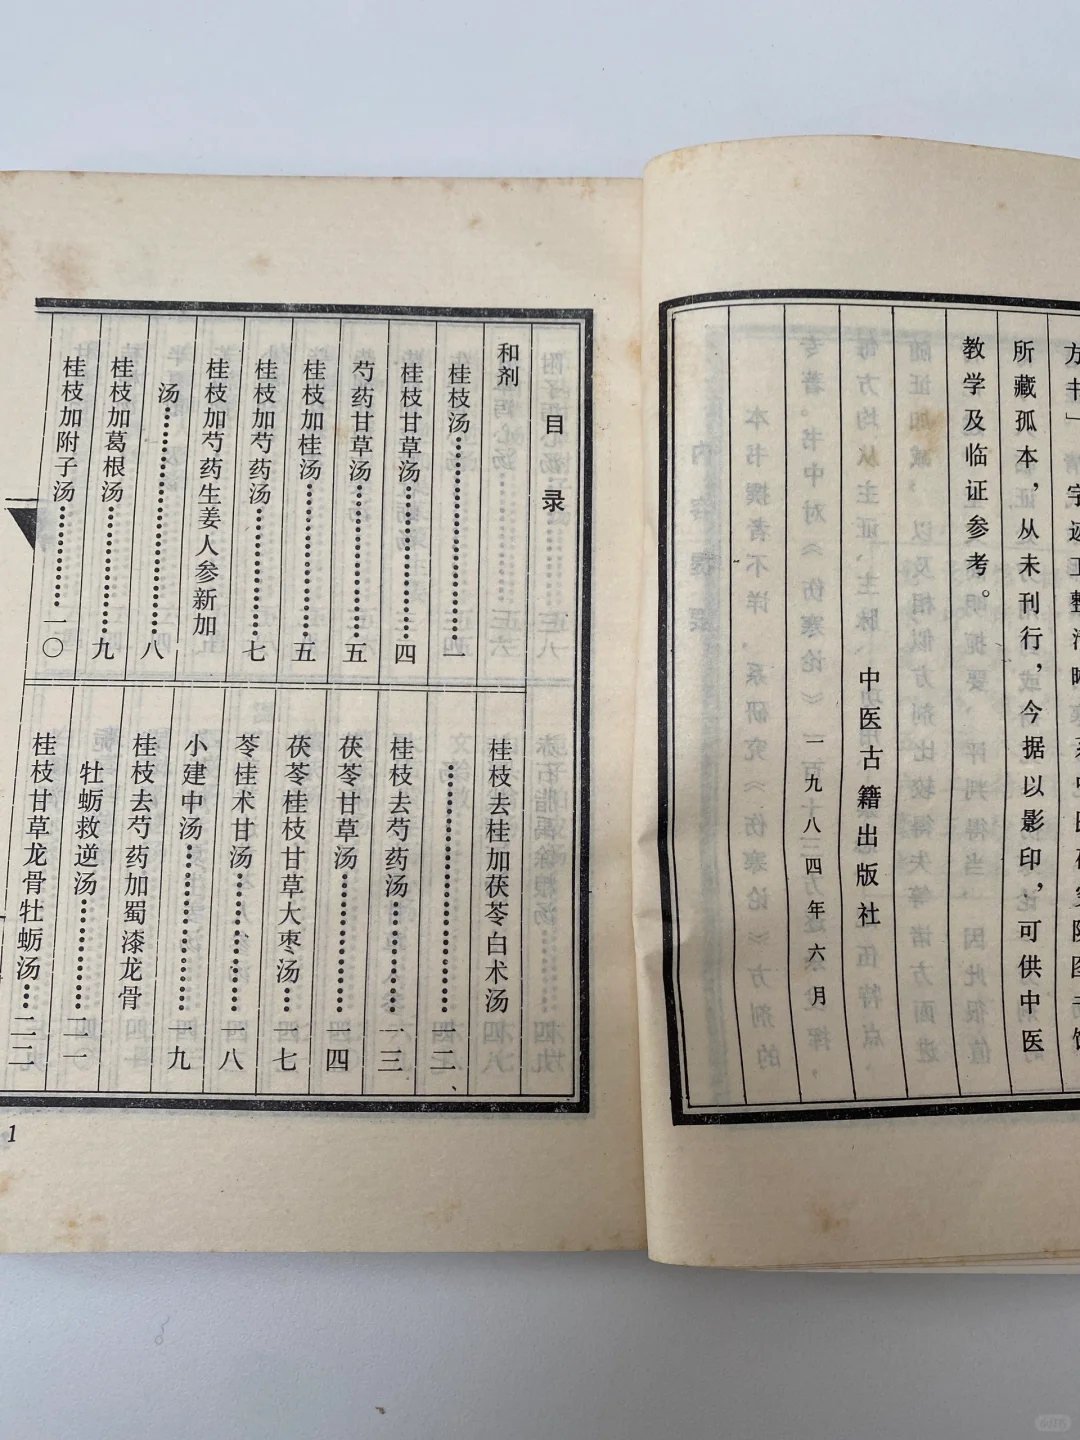 所藏孤本，从未刊行，今据以影印，可供中医
教学及临证参考。
中医古籍出版社
一九八四年六月
目录
和剂
桂枝汤……………一
桂枝甘草汤……………四
芍药甘草汤……………五
桂枝加桂汤……………五
桂枝加芍药汤……………七
桂枝加芍药生姜人参新加
汤……………八
桂枝加葛根汤……………九
桂枝加附子汤……………一〇
桂枝去桂加茯苓白术汤
……………一二
桂枝去芍药汤……………一三
茯苓甘草汤……………一四
茯苓桂枝甘草大枣汤……一七
苓桂术甘汤……………一八
小建中汤……………一九
桂枝去芍药加蜀漆龙骨
牡蛎救逆汤……………二一
桂枝甘草龙骨牡蛎汤…二二
1